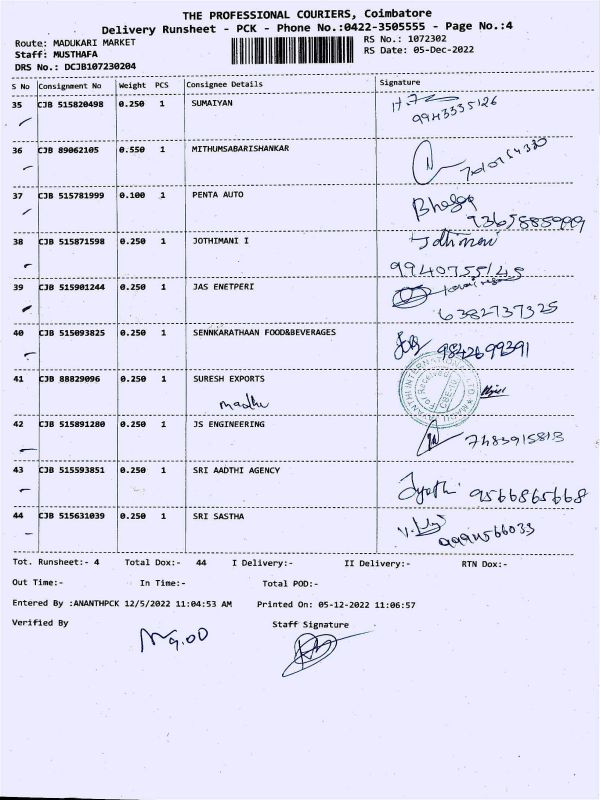 THE PROFESSIONAL COURIERS, Coimbatore
Delivery Runsheet - PCK - Phone No.:0422-3505555 - Page No.:4
Route: MADUKARI MARKET RS No.: 1072302
Staff: MUSTHAFA RS Date: 05-Dec-2022
DRS No.: DCJB107230204
S No Consignment No Weight PCS Consignee Details Signature
35 CJB 515820498 0.250 1 SUMAIYAN
9943335126
36 CJB 89062105 0.550 1 MITHUMSABARISHANKAR
37 CJB 515781999 0.100 1 PENTA AUTO
9365885999
38 CJB 515871598 0.250 1 JOTHIMANI I Jothimani
9940755145
39 CJB 515901244 0.250 1 JAS ENETPERI
6382737325
40 CJB 515093825 0.250 1 SENNKARATHAAN FOOD&BEVERAGES
9842699391
41 CJB 88829096 0.250 1 SURESH EXPORTS
madhu
42 CJB 515891280 0.250 1 JS ENGINEERING
7483915813
43 CJB 515593851 0.250 1 SRI AADTHI AGENCY
Jyothi 9566865668
44 CJB 515631039 0.250 1 SRI SASTHA
Tot. Runsheet:- 4 Total Dox:- 44 I Delivery:- II Delivery:- RTN Dox:-
Out Time:- In Time:- Total POD:-
Entered By :ANANTHPCK 12/5/2022 11:04:53 AM Printed On: 05-12-2022 11:06:57
Verified By Staff Signature